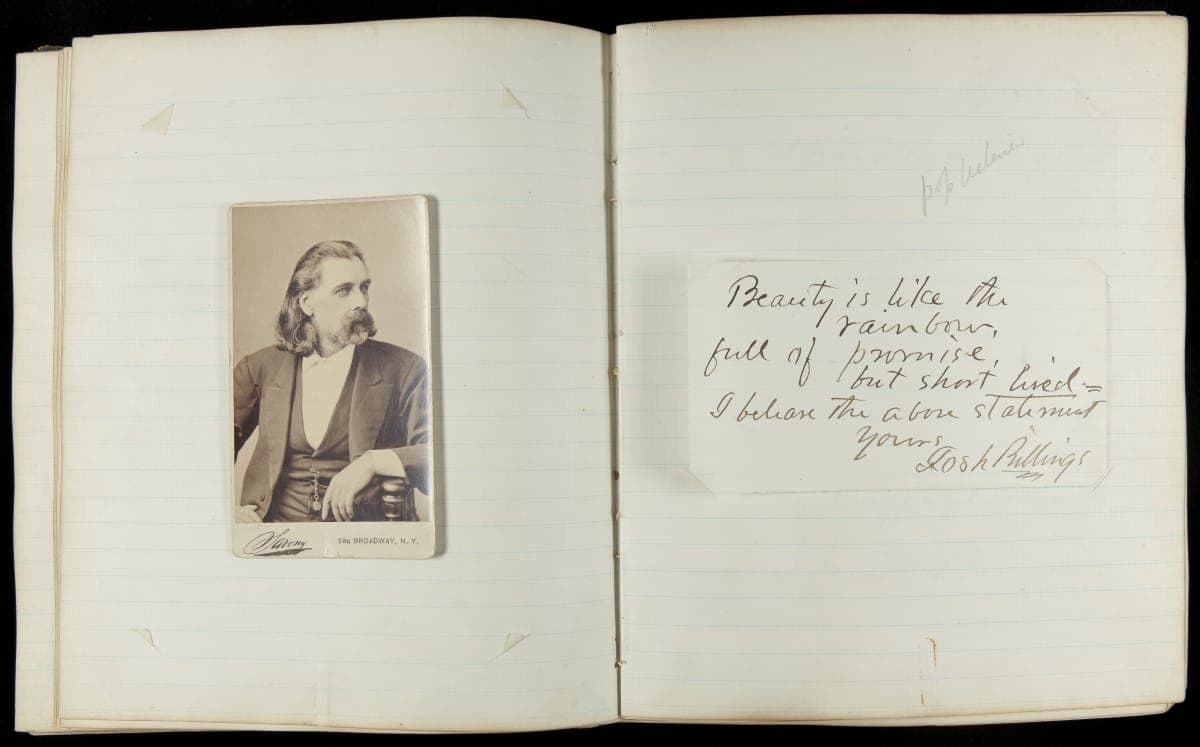 Sarony
680 BROADWAY, N. Y.
Beauty is like the
rainbow,
full of promise,
but short lived =
I believe the above statement
Yours
Josh Billings